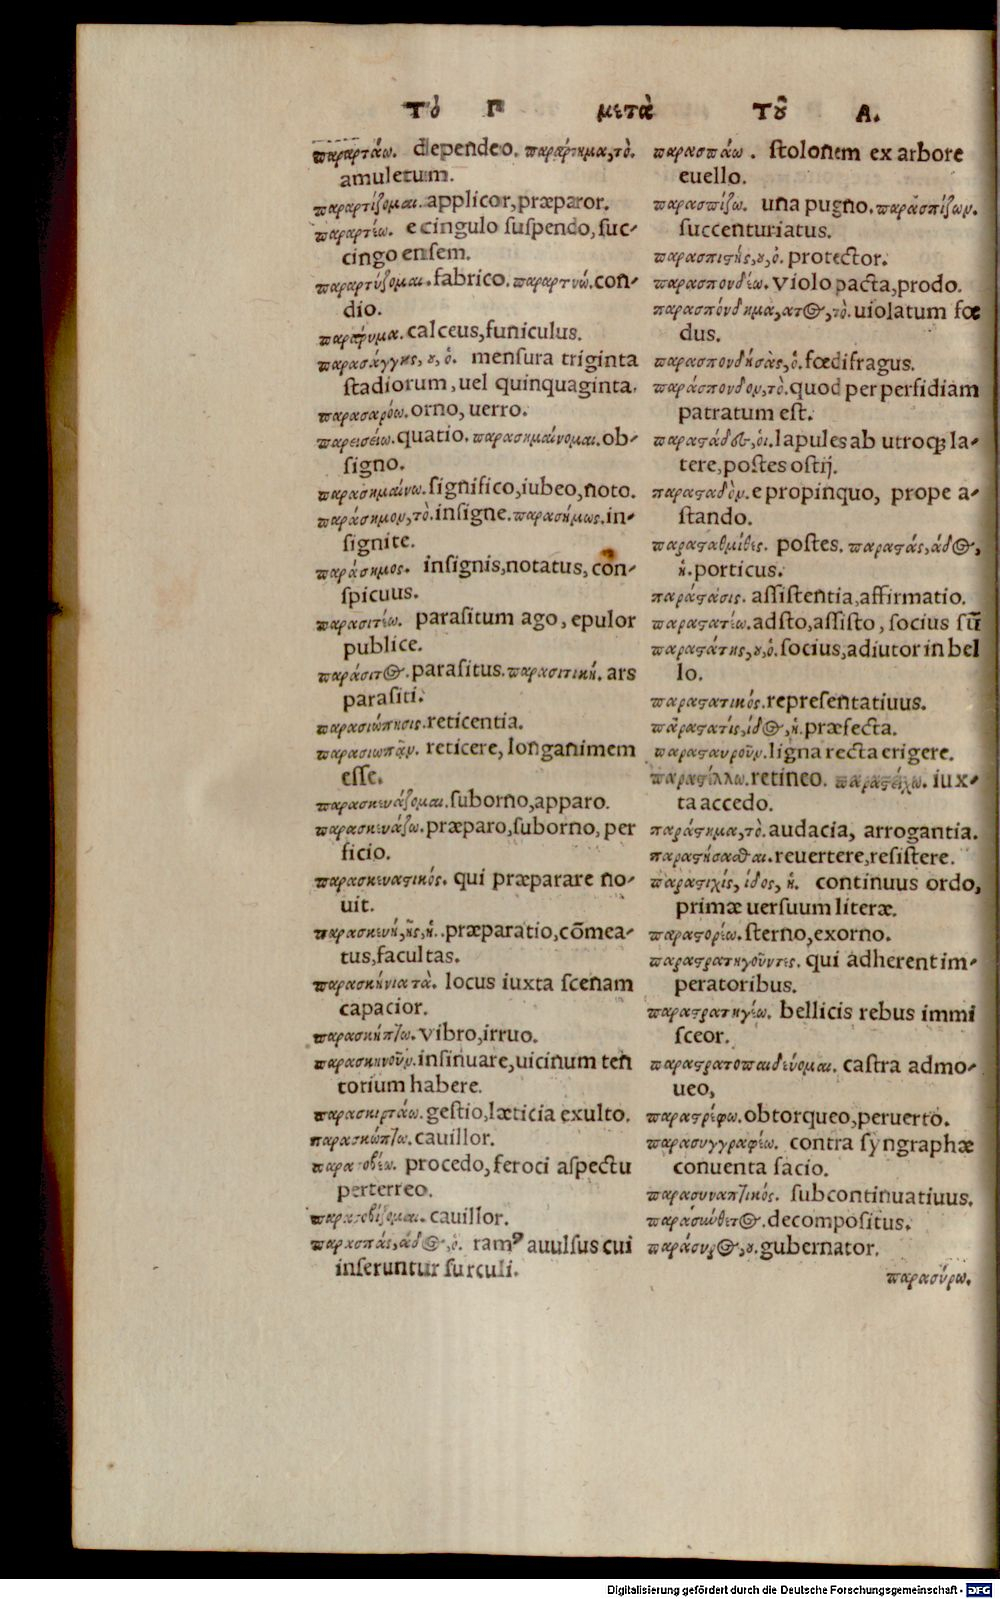 Τὸ Π μετὰ Τοῦ Α.
παραρτάω. dependeo. παράρτημα, τὸ.
amuletum.
παραρτίζομαι. applicor, præparor.
παραρτέω. e cingulo suspendo, suc-
cingo ensem.
παραρτύζομαι. fabrico. παραρτύω. con-
dio.
παράρυμα. calceus, funiculus.
παρασάγγης, ου, ὁ. mensura triginta
stadiorum, uel quinquaginta.
παρασαρόω. orno, uerro.
παρεισείω. quatio. παρασημαίνομαι. ob-
signo.
παρασημαίνω. significo, iubeo, noto.
παράσημον, τὸ. insigne. παρασήμως. in-
signite.
παράσημος. insignis, notatus, con-
spicuus.
παρασιτέω. parasitum ago, epulor
publice.
παράσιτος. parasitus. παρασιτική. ars
parasiti.
παρασιώπησις. reticentia.
παρασιωπᾶν. reticere, longanimem
esse.
παρασκευάζομαι. suborno, apparo.
παρασκευάζω. præparo, suborno, per
ficio.
παρασκευαστικός. qui præparare no-
uit.
παρασκευή, ῆς, ἡ. præparatio, cōmea-
tus, facultas.
παρασκήνια τὰ. locus iuxta scenam
capacior.
παρασκήπτω. vibro, irruo.
παρασκηνοῦν. insinuare, uicinum ten
torium habere.
παρασκιρτάω. gestio, læticia exulto.
παρασκώπτω. cauillor.
παρασοβέω. procedo, feroci aspectu
perterreo.
παρασοβίζομαι. cauillor.
παρασπάς, άδος, ὁ. ramꝰ auulsus cui
inseruntur surculi.
παρασπάω. stolonem ex arbore
euello.
παρασπίζω. una pugno. παρασπίζων.
succenturiatus.
παρασπιστής, ου, ὁ. protector.
παρασπονδέω. violo pacta, prodo.
παρασπόνδημα, ατος, τὸ. uiolatum fœ
dus.
παρασπονδήσας, ὁ. fœdifragus.
παράσπονδον, τὸ. quod per perfidiam
patratum est.
παραστάδες, οἱ. lapules ab utroqꝫ la-
tere, postes ostij.
παρασταδὸν. e propinquo, prope a-
stando.
παρασταθμίδες. postes. παραστάς, άδος,
ἡ. porticus.
παράστασις. assistentia, affirmatio.
παραστατέω. adsto, assisto, socius sū
παραστάτης, ου, ὁ. socius, adiutor in bel
lo.
παραστατικός. repręsentatiuus.
παραστατίς, ίδος, ἡ. præfecta.
παρασταυροῦν. ligna recta erigere.
παραστέλλω. retineo. παραστείχω. iux-
ta accedo.
παράστημα, τὸ. audacia, arrogantia.
παραστήσασθαι. reuertere, resistere.
παραστιχίς, ίδος, ἡ. continuus ordo,
primæ uersuum literæ.
παραστορέω. sterno, exorno.
παραστρατηγοῦντες. qui adherent im-
peratoribus.
παραστρατηγέω. bellicis rebus immi
sceor.
παραστρατοπαιδεύομαι. castra admo-
ueo,
παραστρέφω. obtorqueo, peruerto.
παρασυγγραφέω. contra syngraphæ
conuenta facio.
παρασυναπτικός. subcontinuatiuus.
παρασύνθετος. decompositus.
παράσυρος, ου. gubernator.
παρασύρω.
Digitalisierung gefördert durch die Deutsche Forschungsgemeinschaft - DFG